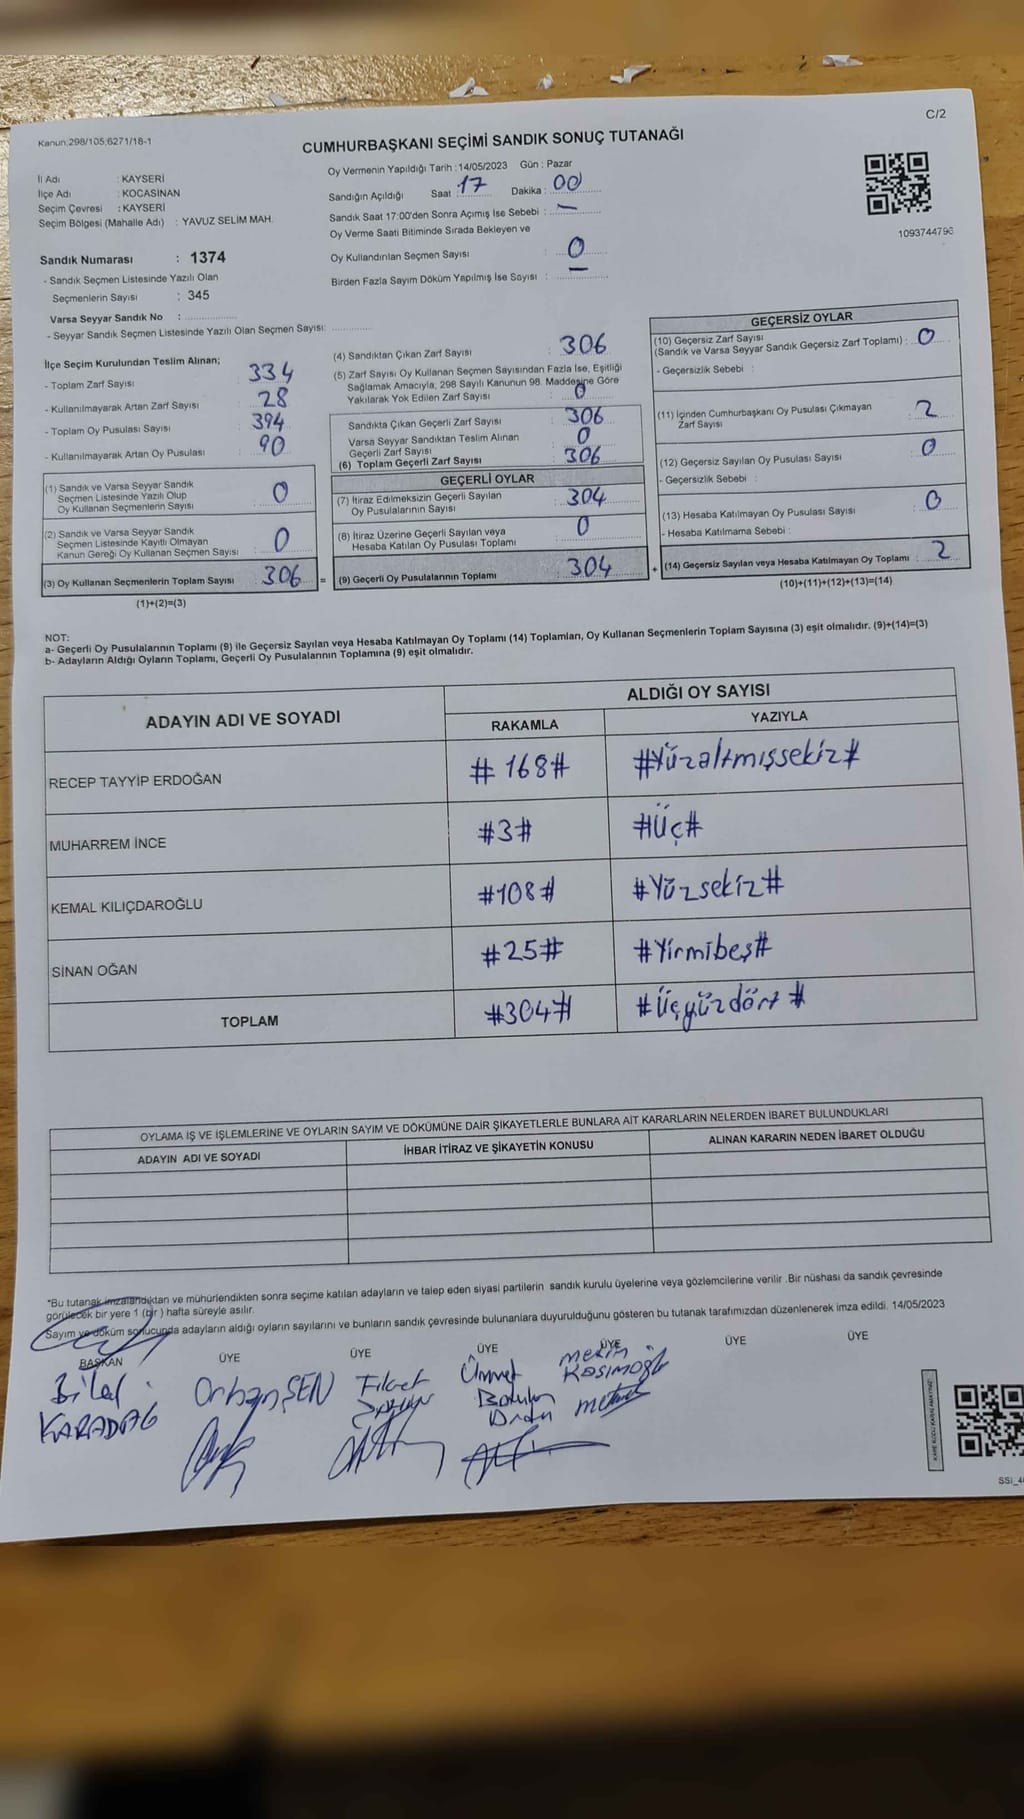 C/2
Kanun,298/105,6271/18-1
CUMHURBAŞKANI SEÇİMİ SANDIK SONUÇ TUTANAĞI
İl Adı : KAYSERİ
İlçe Adı : KOCASİNAN
Seçim Çevresi : KAYSERİ
Seçim Bölgesi (Mahalle Adı) : YAVUZ SELİM MAH.
Oy Vermenin Yapıldığı Tarih : 14/05/2023 Gün : Pazar
Sandığın Açıldığı Saat : 17 Dakika : 00
Sandık Saat 17:00'den Sonra Açımış İse Sebebi : —
Oy Verme Saati Bitiminde Sırada Bekleyen ve
Oy Kullandırılan Seçmen Sayısı : 0
Birden Fazla Sayım Döküm Yapılmış İse Sayısı : —
1093744796
Sandık Numarası : 1374
- Sandık Seçmen Listesinde Yazılı Olan
Seçmenlerin Sayısı : 345
Varsa Seyyar Sandık No :
- Seyyar Sandık Seçmen Listesinde Yazılı Olan Seçmen Sayısı:
İlçe Seçim Kurulundan Teslim Alınan;
- Toplam Zarf Sayısı 334
- Kullanılmayarak Artan Zarf Sayısı 28
- Toplam Oy Pusulası Sayısı 394
- Kullanılmayarak Artan Oy Pusulası 90
(1) Sandık ve Varsa Seyyar Sandık
Seçmen Listesinde Yazılı Olup
Oy Kullanan Seçmenlerin Sayısı : 0
(2) Sandık ve Varsa Seyyar Sandık
Seçmen Listesinde Kayıtlı Olmayan
Kanun Gereği Oy Kullanan Seçmen Sayısı : 0
(3) Oy Kullanan Seçmenlerin Toplam Sayısı : 306 =
(1)+(2)=(3)
(4) Sandıktan Çıkan Zarf Sayısı : 306
(5) Zarf Sayısı Oy Kullanan Seçmen Sayısından Fazla İse, Eşitliği
Sağlamak Amacıyla, 298 Sayılı Kanunun 98. Maddesine Göre
Yakılarak Yok Edilen Zarf Sayısı : 0
Sandıkta Çıkan Geçerli Zarf Sayısı : 306
Varsa Seyyar Sandıktan Teslim Alınan
Geçerli Zarf Sayısı : 0
(6) Toplam Geçerli Zarf Sayısı : 306
GEÇERLİ OYLAR
(7) İtiraz Edilmeksizin Geçerli Sayılan
Oy Pusulalarının Sayısı : 304
(8) İtiraz Üzerine Geçerli Sayılan veya
Hesaba Katılan Oy Pusulası Toplamı : 0
(9) Geçerli Oy Pusulalarının Toplamı : 304 +
GEÇERSİZ OYLAR
(10) Geçersiz Zarf Sayısı
(Sandık ve Varsa Seyyar Sandık Geçersiz Zarf Toplamı) : 0
- Geçersizlik Sebebi :
(11) İçinden Cumhurbaşkanı Oy Pusulası Çıkmayan
Zarf Sayısı : 2
(12) Geçersiz Sayılan Oy Pusulası Sayısı : 0
- Geçersizlik Sebebi :
(13) Hesaba Katılmayan Oy Pusulası Sayısı : 0
- Hesaba Katılmama Sebebi :
(14) Geçersiz Sayılan veya Hesaba Katılmayan Oy Toplamı : 2
(10)+(11)+(12)+(13)=(14)
NOT:
a- Geçerli Oy Pusulalarının Toplamı (9) ile Geçersiz Sayılan veya Hesaba Katılmayan Oy Toplamı (14) Toplamları, Oy Kullanan Seçmenlerin Toplam Sayısına (3) eşit olmalıdır. (9)+(14)=(3)
b- Adayların Aldığı Oyların Toplamı, Geçerli Oy Pusulalarının Toplamına (9) eşit olmalıdır.
ADAYIN ADI VE SOYADI ALDIĞI OY SAYISI
RAKAMLA YAZIYLA
RECEP TAYYİP ERDOĞAN #168# #Yüzaltmışsekiz#
MUHARREM İNCE #3# #Üç#
KEMAL KILIÇDAROĞLU #108# #Yüzsekiz#
SİNAN OĞAN #25# #Yirmibeş#
TOPLAM #304# #Üçyüzdört#
OYLAMA İŞ VE İŞLEMLERİNE VE OYLARIN SAYIM VE DÖKÜMÜNE DAİR ŞİKAYETLERLE BUNLARA AİT KARARLARIN NELERDEN İBARET BULUNDUKLARI
ADAYIN ADI VE SOYADI İHBAR İTİRAZ VE ŞİKAYETİN KONUSU ALINAN KARARIN NEDEN İBARET OLDUĞU
*Bu tutanak imzalandıktan ve mühürlendikten sonra seçime katılan adayların ve talep eden siyasi partilerin sandık kurulu üyelerine veya gözlemcilerine verilir .Bir nüshası da sandık çevresinde
görülecek bir yere 1 (bir ) hafta süreyle asılır.
Sayım ve döküm sonucunda adayların aldığı oyların sayılarını ve bunların sandık çevresinde bulunanlara duyurulduğunu gösteren bu tutanak tarafımızdan düzenlenerek imza edildi. 14/05/2023
BAŞKAN ÜYE ÜYE ÜYE ÜYE ÜYE ÜYE
Bilal KARADAĞ
Orhan ŞEN
Fikret
Ümmet
Metin